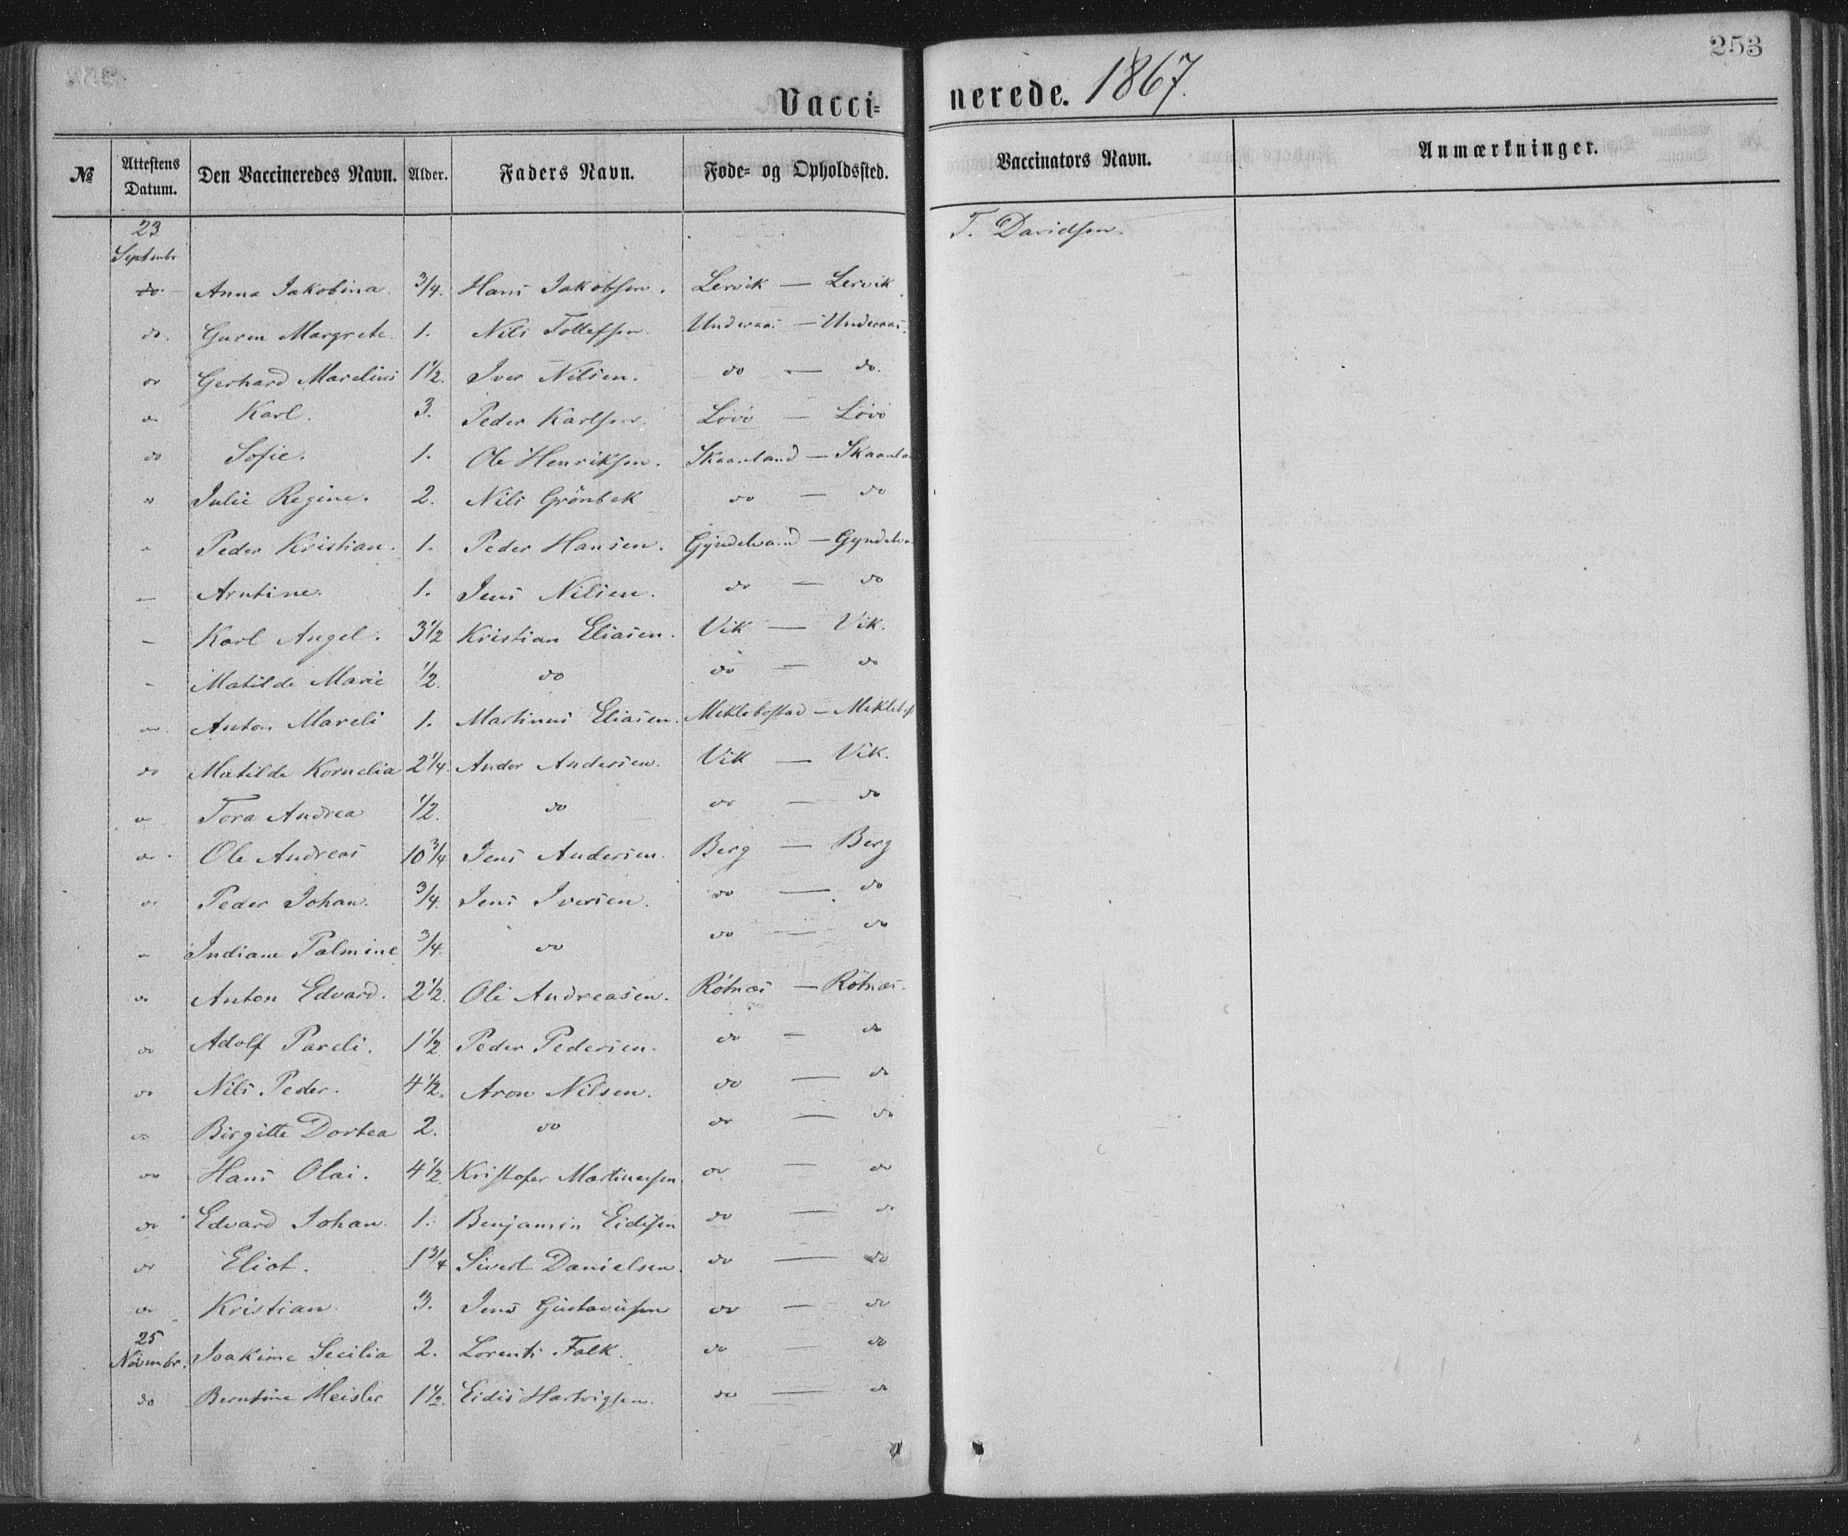 253
Vacci= nerede. 1867.
№ Attestens Datum. Den Vaccineredes Navn. Alder. Faders Navn. Føde- og Opholdssted. Vaccinators Navn. Anmærkninger.
23 Septembr T. Davidsen.
do. Anna Jakobina. 3/4. Hans Jakobsen. Lervik — Lervik
do. Guren Margrete. 1. Nils Tollefsen. Underaas — Underaas.
do Gerhard Marelius 1 1/2. Iver Nilsen. do — do.
do Karl. 3. Peder Karlsen. Lövö — Lövö
do Sofie. 1. Ole Henriksen. Skaanland — Skaanla
" Julie Regine. 2. Nils Grönbek do — do
" Peder Kristian. 1. Peder Hansen. Gyndelvand — Gyndelva
— Arntine. 1. Jens Nilsen. do — do
— Karl Angel. 3 1/2 Kristian Eliasen. Vik — Vik.
- Matilde Marie 1/2. do do — do
do Anton Mareli 1. Martinus Eliasen. Miklebostad — Miklebost
do Matilde Kornelia 2 1/4. Andor Andersen. Vik — Vik.
do Tora Andrea 1/2. do do — do
do Ole Andreas 10 3/4 Jens Andersen. Berg — Berg
do Peder Johan. 3/4. Jens Iversen. do — do
" Indiane Palmine 3/4. do do — do
do Anton Edvard. 2 1/2. Ole Andreasen. Rötnæs — Rötnæs.
do Adolf Pareli. 1 1/2 Peder Pedersen. do — do
do Nils Peder. 4 1/2. Aron Nilsen. do — do
do Birgitte Dortea 2. do do — do
do Hans Olai. 4 1/2. Kristofer Martinussen. do — do
do Edvard Johan. 1. Benjamin Eidisen do — do
do Eliot. 1 3/4 Sivert Danielsen. do — do
do Kristian 3. Jens Gustavsen do — do
25 Novembr. Joakime Secilia 2. Lorents Falk. do — do
do Berntine Meisler 1 1/2. Eidis Hartvigsen. do — do